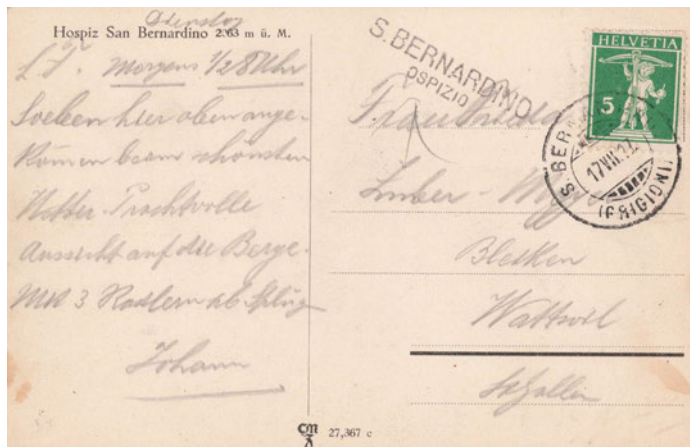 Dienstag
Hospiz San Bernardino 2.63 m ü. M.
L. F. Morgens 1/2 8 Uhr
Soeben hier oben ange-
komen beim schönsten
Wetter. Prachtvolle
Aussicht auf die Berge.
Mit 3 Radlern ab Splüg
Johann
S. BERNARDINO
OSPIZIO
HELVETIA
5
S. BERN
17 VII
(GRIGIONI)
Frau
Huber -
Bleiken
Wattwil
St Gallen
27,367 c